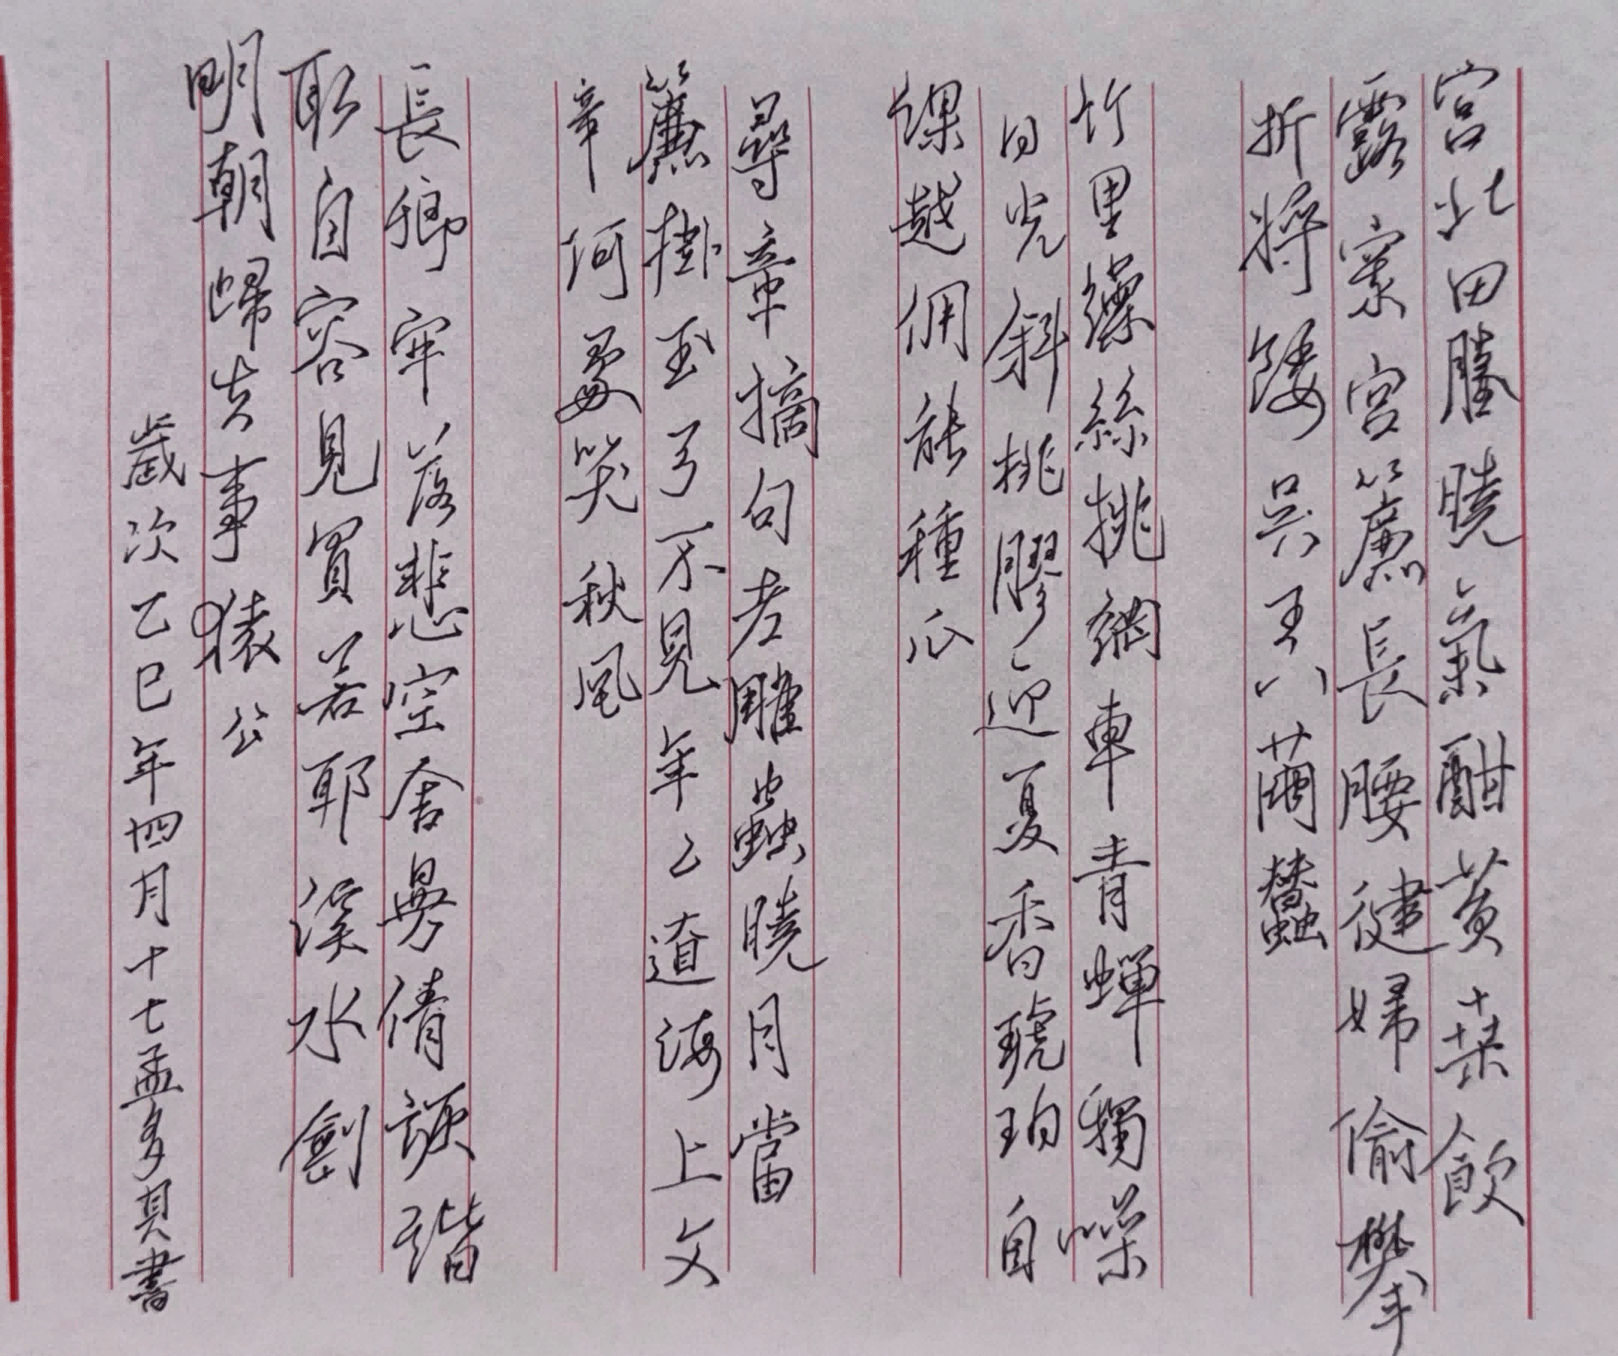 宮北田塍曉氣酣黃桑飲
露窣宮簾長腰健婦偷攀
折將餧吳王八繭蠶
竹里繅絲挑網車青蟬獨噪
日光斜桃膠迎夏香琥珀自
課越佣能種瓜
尋章摘句老雕蟲曉月當
簾掛玉弓不見年々遼海上文
章何處哭秋風
長卿牢落悲空舍曼倩詼諧
取自容見買若耶溪水劍
明朝歸去事猿公
歲次乙巳年四月十七孟多書